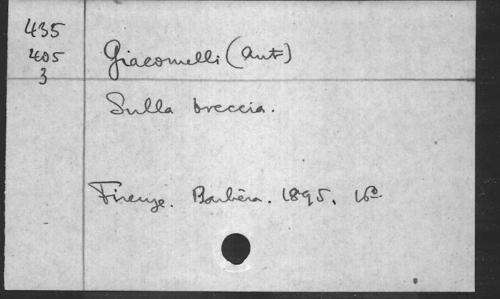 435
405
3
Giacomelli (Ant)
Sulla breccia.
Firenze. Barbèra. 1895. 16º